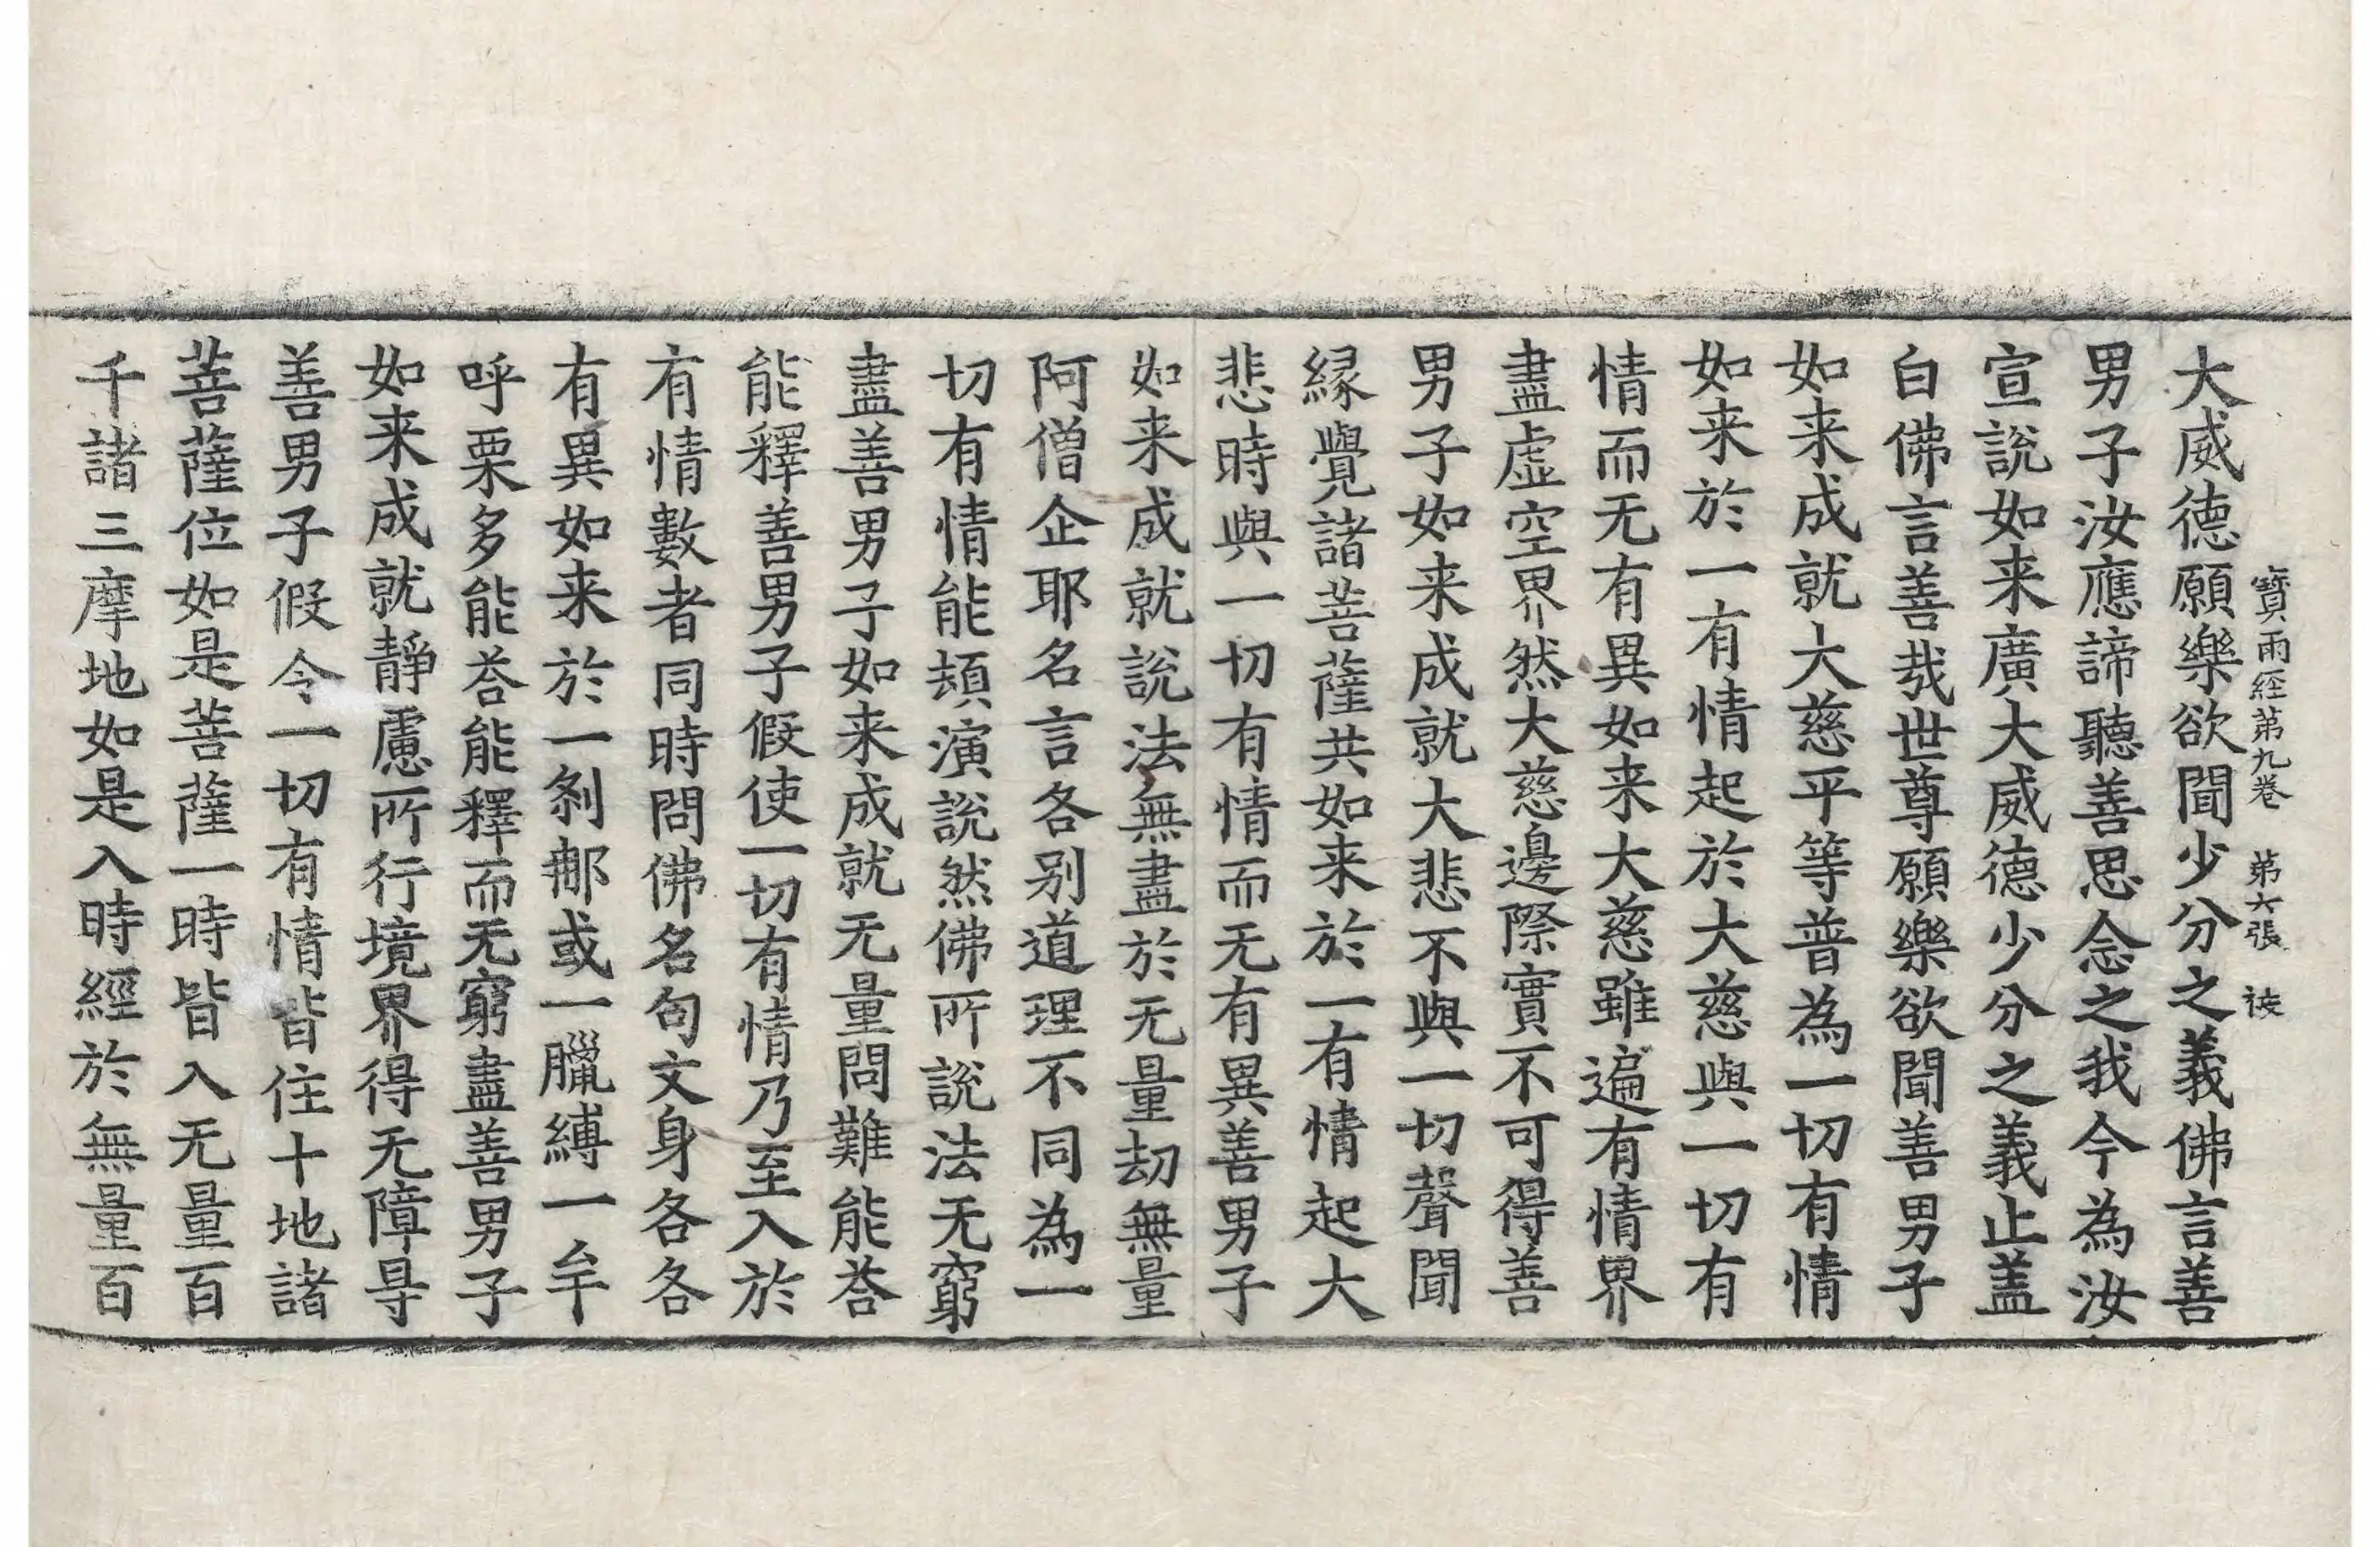 寶雨經第九卷　第六張　裱
大威德願樂欲聞少分之義佛言善
男子汝應諦聽善思念之我今為汝
宣說如来廣大威德少分之義止盖
白佛言善哉世尊願樂欲聞善男子
如来成就大慈平等普為一切有情
如来於一有情起於大慈與一切有
情而无有異如来大慈雖遍有情界
盡虛空界然大慈邊際實不可得善
男子如来成就大悲不與一切聲聞
緣覺諸菩薩共如来於一有情起大
悲時與一切有情而无有異善男子
如来成就說法無盡於无量劫無量
阿僧企耶名言各别道理不同為一
切有情能頡演說然佛所說法无窮
盡善男子如来成就无量問難能荅
能釋善男子假使一切有情乃至入於
有情數者同時問佛名句文身各各
有異如来於一剎那或一臘縛一牟
呼栗多能荅能釋而无窮盡善男子
如来成就靜慮所行境界得无障㝵
善男子假令一切有情皆住十地諸
菩薩位如是菩薩一時皆入无量百
千諸三摩地如是入時經於無量百